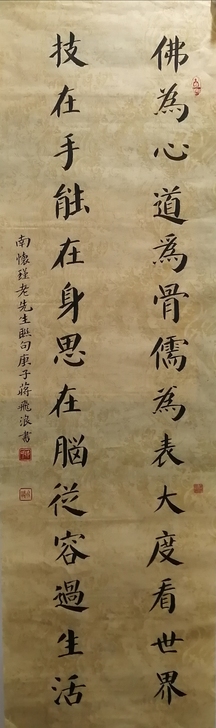 佛為心道為骨儒為表大度看世界
技在手能在身思在腦從容過生活
南懷瑾老先生聯句庚子蔣飛浪書